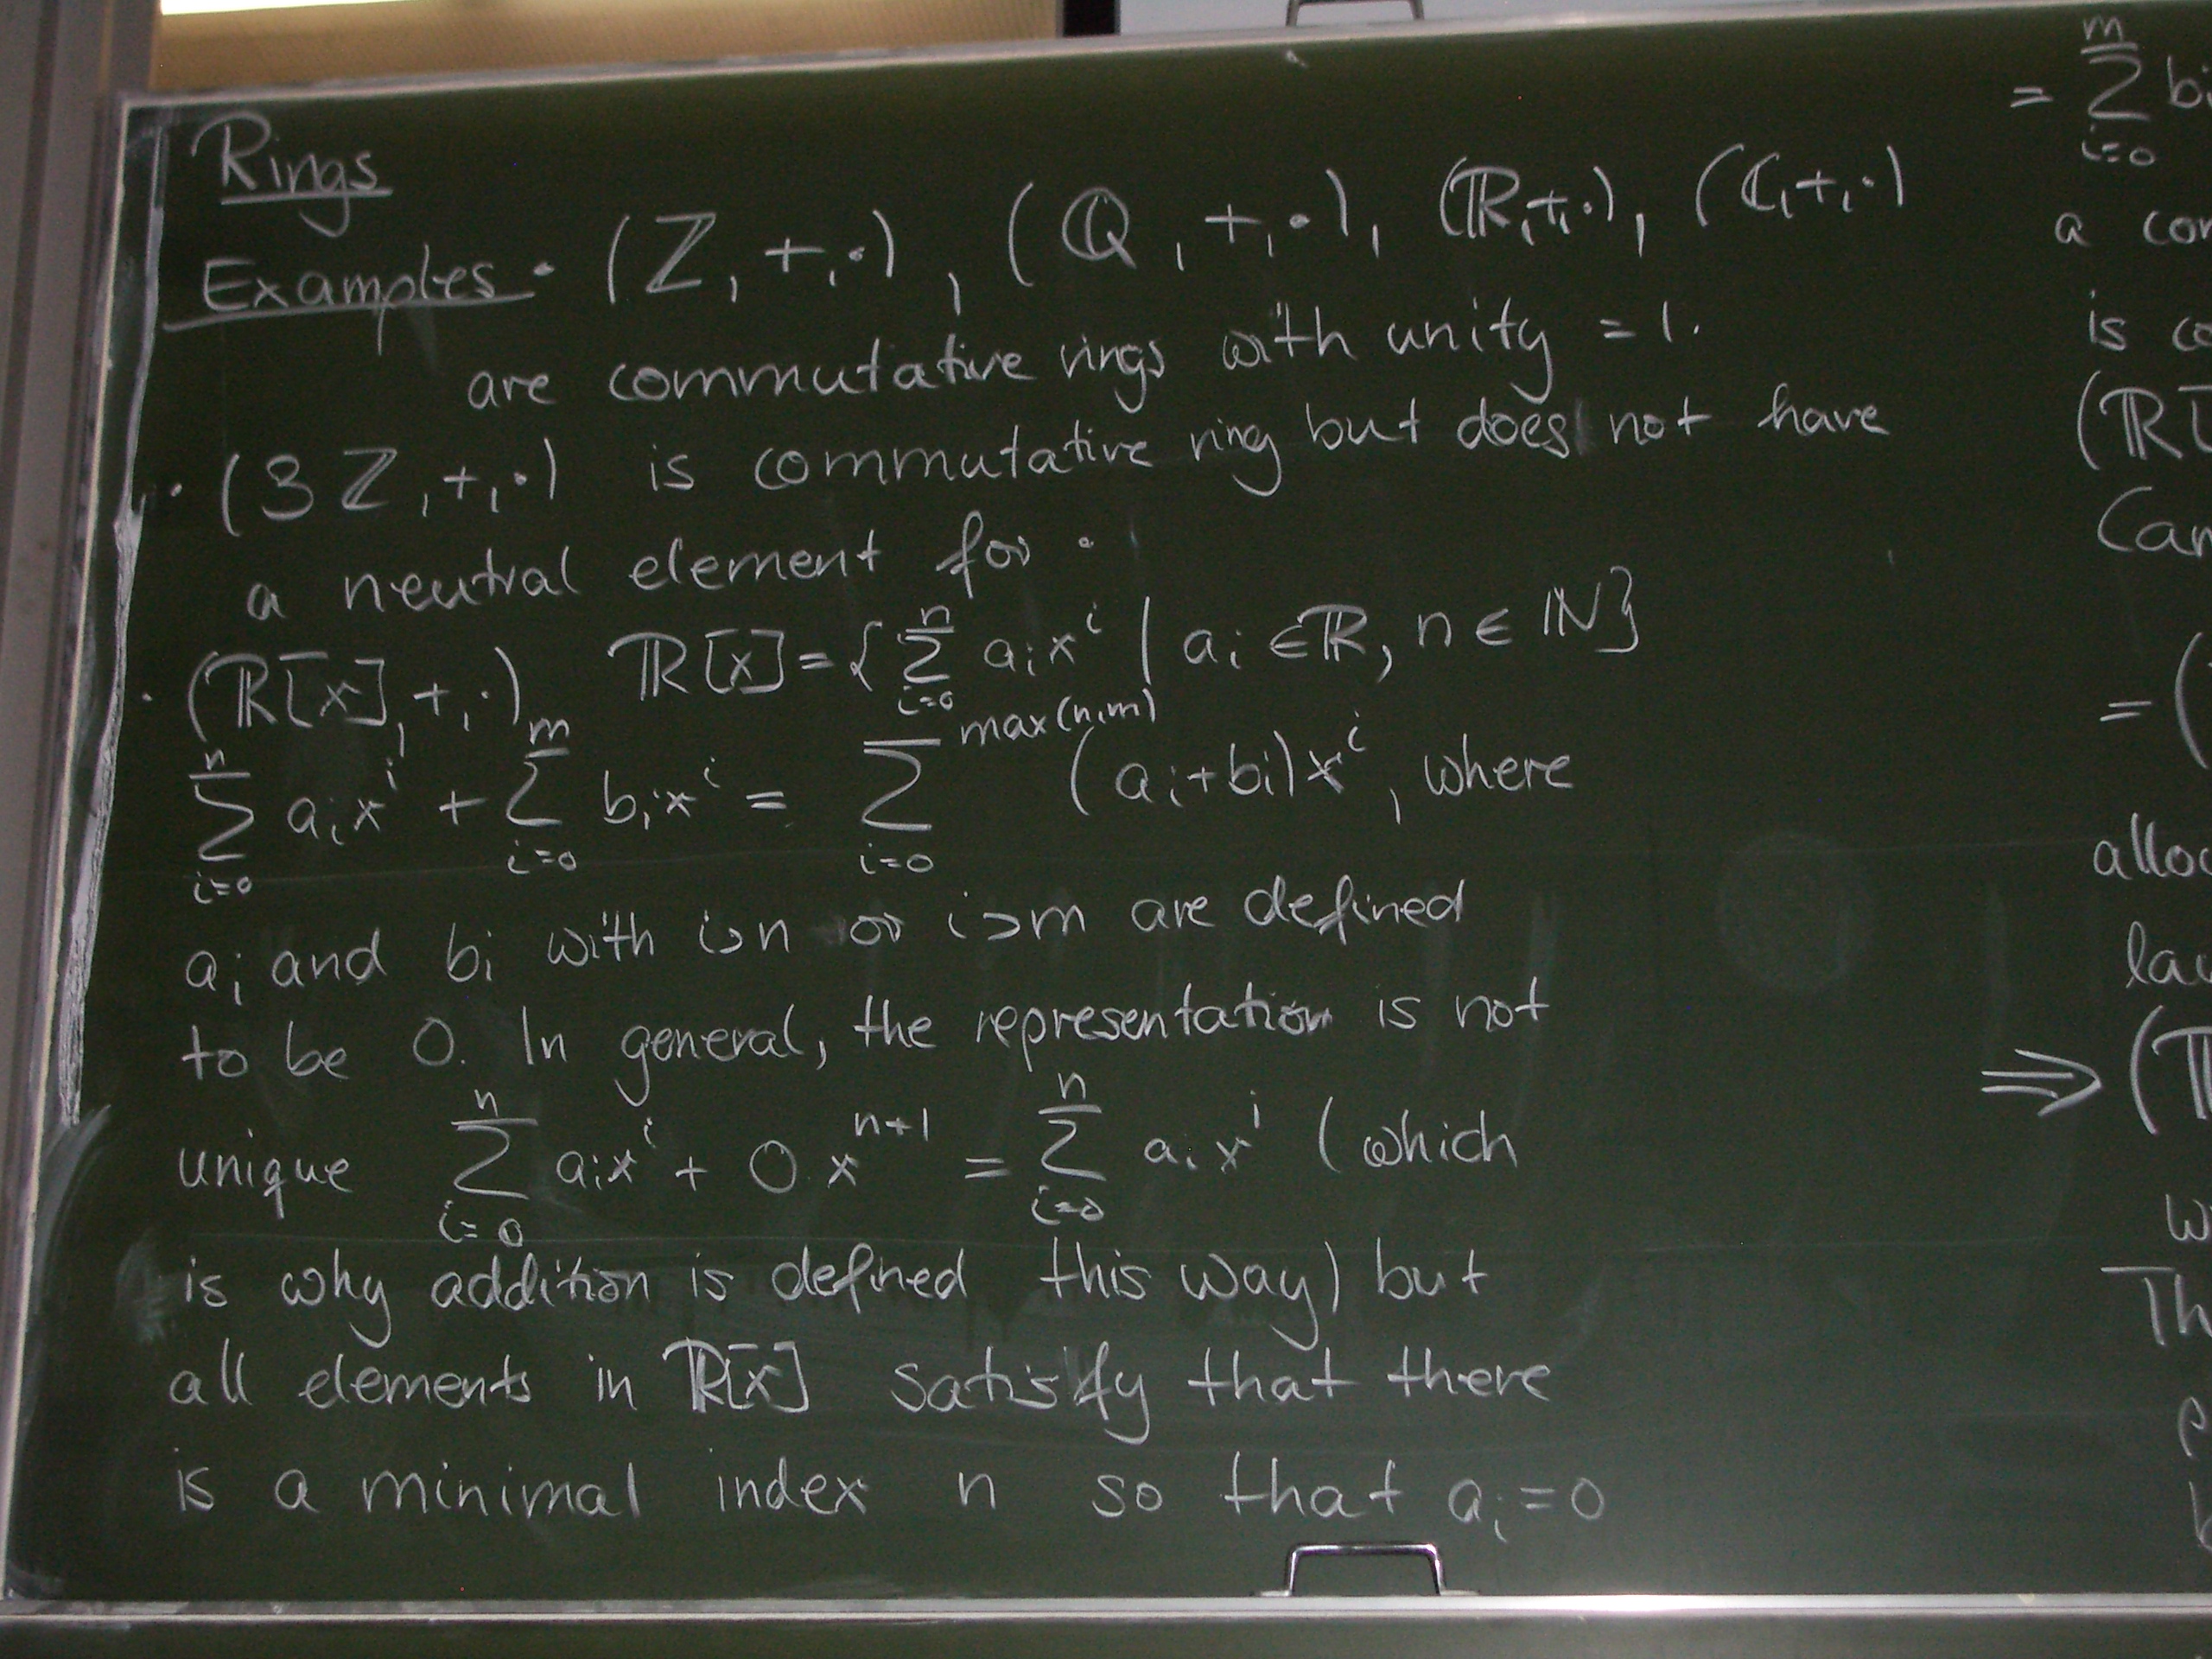 Rings
Examples · (ℤ, +, ·), (ℚ, +, ·), (ℝ, +, ·), (ℂ, +, ·)
are commutative rings with unity = 1.
· (3ℤ, +, ·) is commutative ring but does not have
a neutral element for ·
· (ℝ[x], +, ·) ℝ[x] = { ∑_{i=0}^{n} a_i x^i | a_i ∈ ℝ, n ∈ ℕ }
∑_{i=0}^{n} a_i x^i + ∑_{i=0}^{m} b_i x^i = ∑_{i=0}^{max(n,m)} (a_i + b_i) x^i, where
a_i and b_i with i>n or i>m are defined
to be 0. In general, the representation is not
unique ∑_{i=0}^{n} a_i x^i + 0 x^{n+1} = ∑_{i=0}^{n} a_i x^i (which
is why addition is defined this way) but
all elements in ℝ[x] satisfy that there
is a minimal index n so that a_i = 0
= ∑_{i=0}^{m} b_i
a
is
(ℝ[
= (
⇒ (
Th